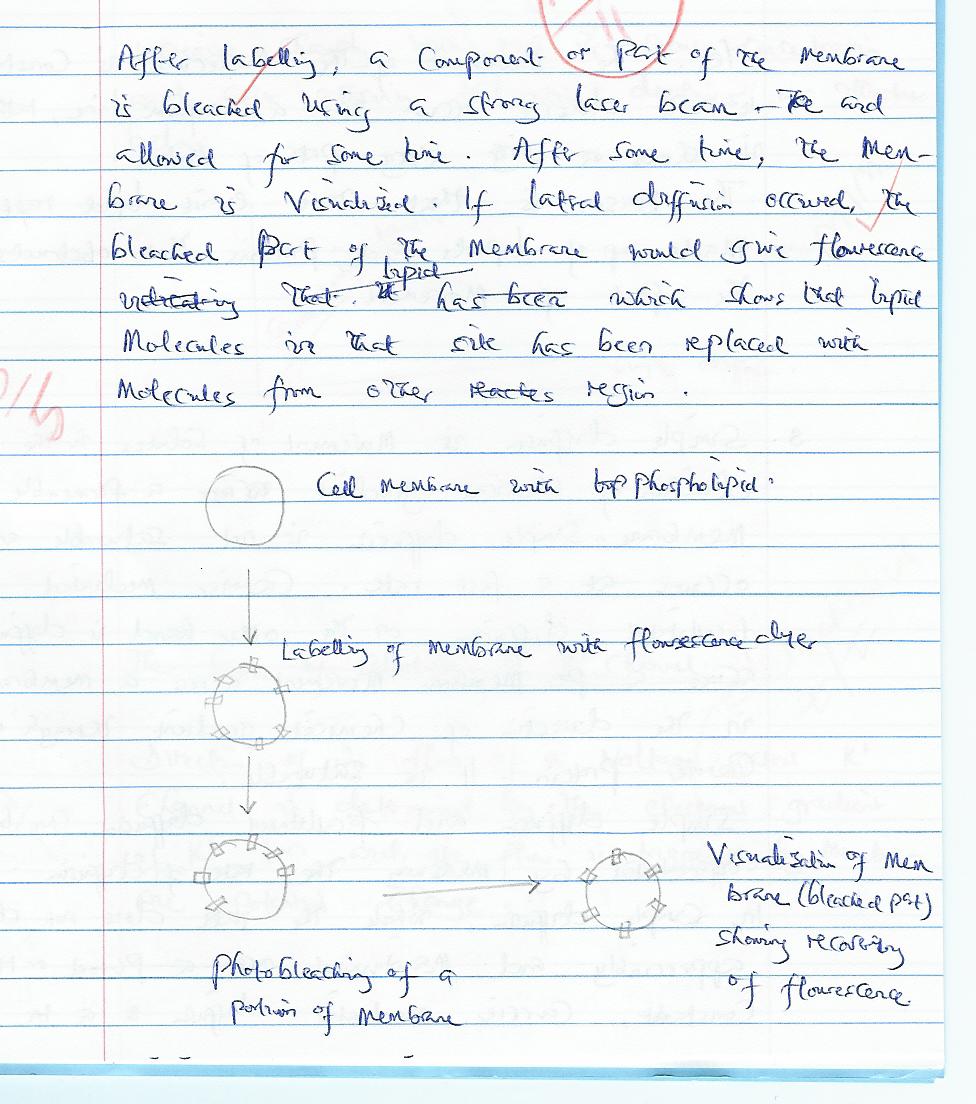 11
After labelling, a Component or Part of the Membrane
is bleached using a strong laser beam - The and
allowed for some time. After some time, the Mem-
brane is Visualised. If lateral diffusion occured, the
bleached Part of the Membrane would give flourescence
indicating that. It lipid has been which shows that lipid
Molecules in that site has been replaced with
Molecules from other reactes region.
Cell membrane with phospholipid.
Labelling of membrane with flourescence dyes
Photobleaching of a
portion of Membrane
Visualisation of Mem
brane (bleached part)
showing recovery
of flourescence